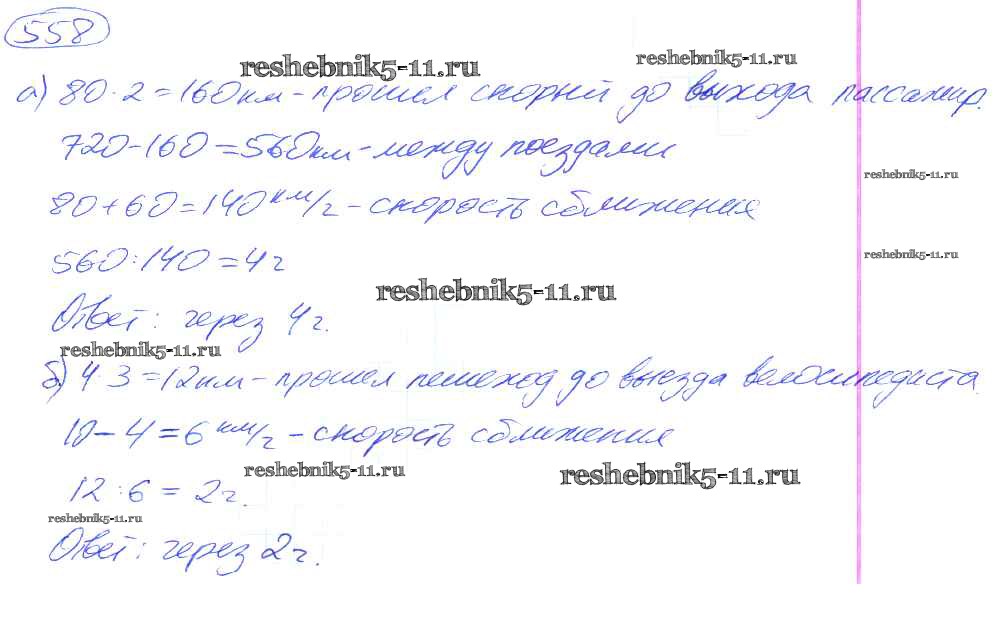 558
reshebnik5-11.ru
reshebnik5-11.ru
а) 80·2=160км-прошел скорый до выхода пассажир.
720-160=560км-между поездами
reshebnik5-11.ru
80+60=140км/ч-скорость сближения
reshebnik5-11.ru
560:140=4ч
reshebnik5-11.ru
Ответ: через 4ч.
reshebnik5-11.ru
б) 4·3=12км-прошел пешеход до выезда велосипедиста.
10-4=6км/ч-скорость сближения
reshebnik5-11.ru
reshebnik5-11.ru
12:6=2ч.
reshebnik5-11.ru
Ответ: через 2ч.